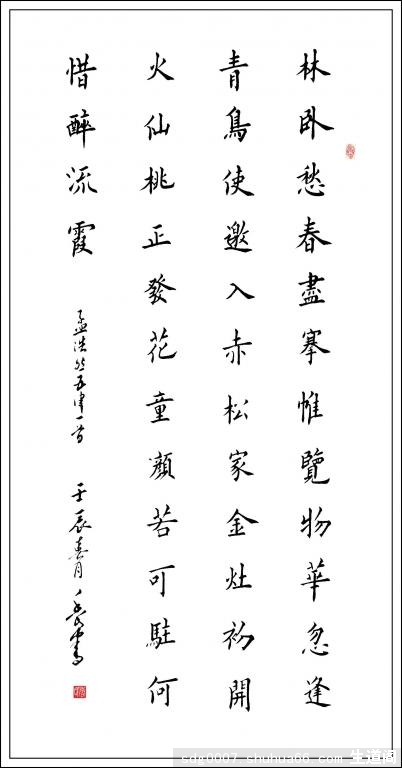 林卧愁春盡搴惟覽物華忽逢
青鳥使邀入赤松家金灶初開
火仙桃正發花童顏若可駐何
惜醉流霞
孟浩然五律一首 壬辰春月
sdg0007.shuhua66.com 生道阁